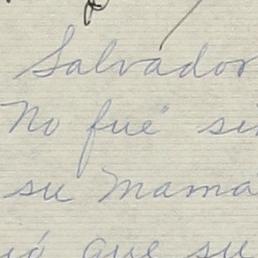 Salvador
No fue si
su Mama
ió que su